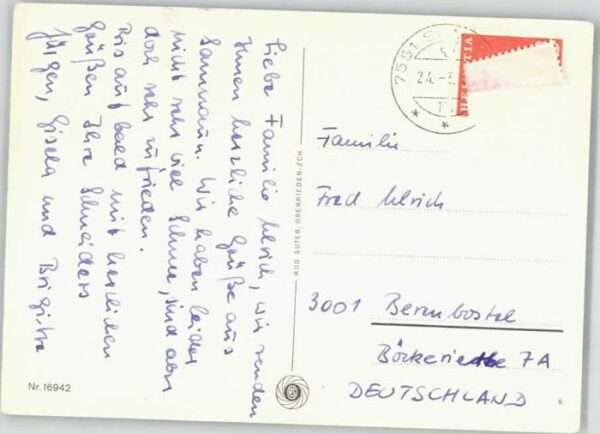 Liebe Familie Ulrich, wir senden
Ihnen herzliche Grüße aus
Samnaun. Wir haben leider
nicht sehr viel Schnee, sind aber
doch sehr zufrieden.
Bis auf bald mit herzlichen
Grüßen Ihre Schneiders
Jürgen, Gisela und Brigitte
Nr. 16942
RUD. SUTER, OBERRIEDEN-ZCH
7551 S
24.-3
HELVETIA
Familie
Fred Ulrich
3001 Berenbostel
7A
DEUTSCHLAND